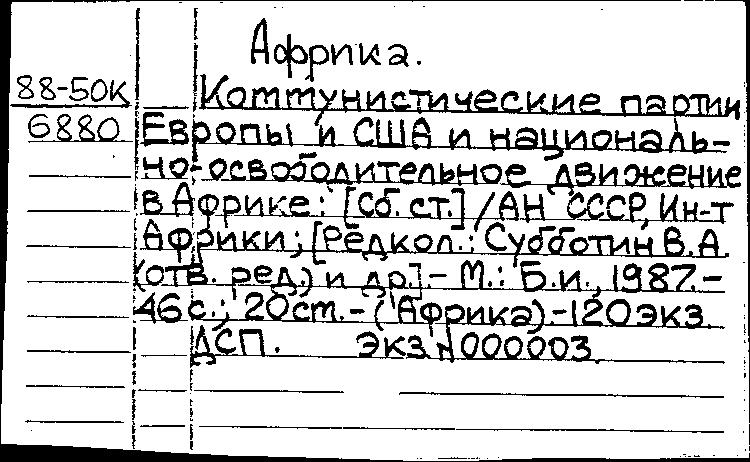 Африка.
88-50К
Коммунистические партии
6880 Европы и США и националь-
но-освободительное движение
в Африке: [Сб. ст.] /АН СССР, Ин-т
Африки; [Редкол.: Субботин В.А.
(отв. ред.) и др.].- М.: Б.и., 1987.-
46с.; 20ст.-(Африка).-120экз.
ДСП. Экз N000003.